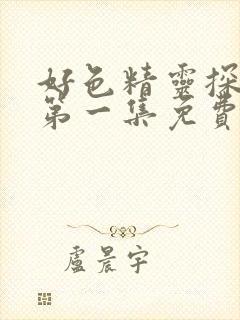 好色精靈探
第一集免費
盧晨宇